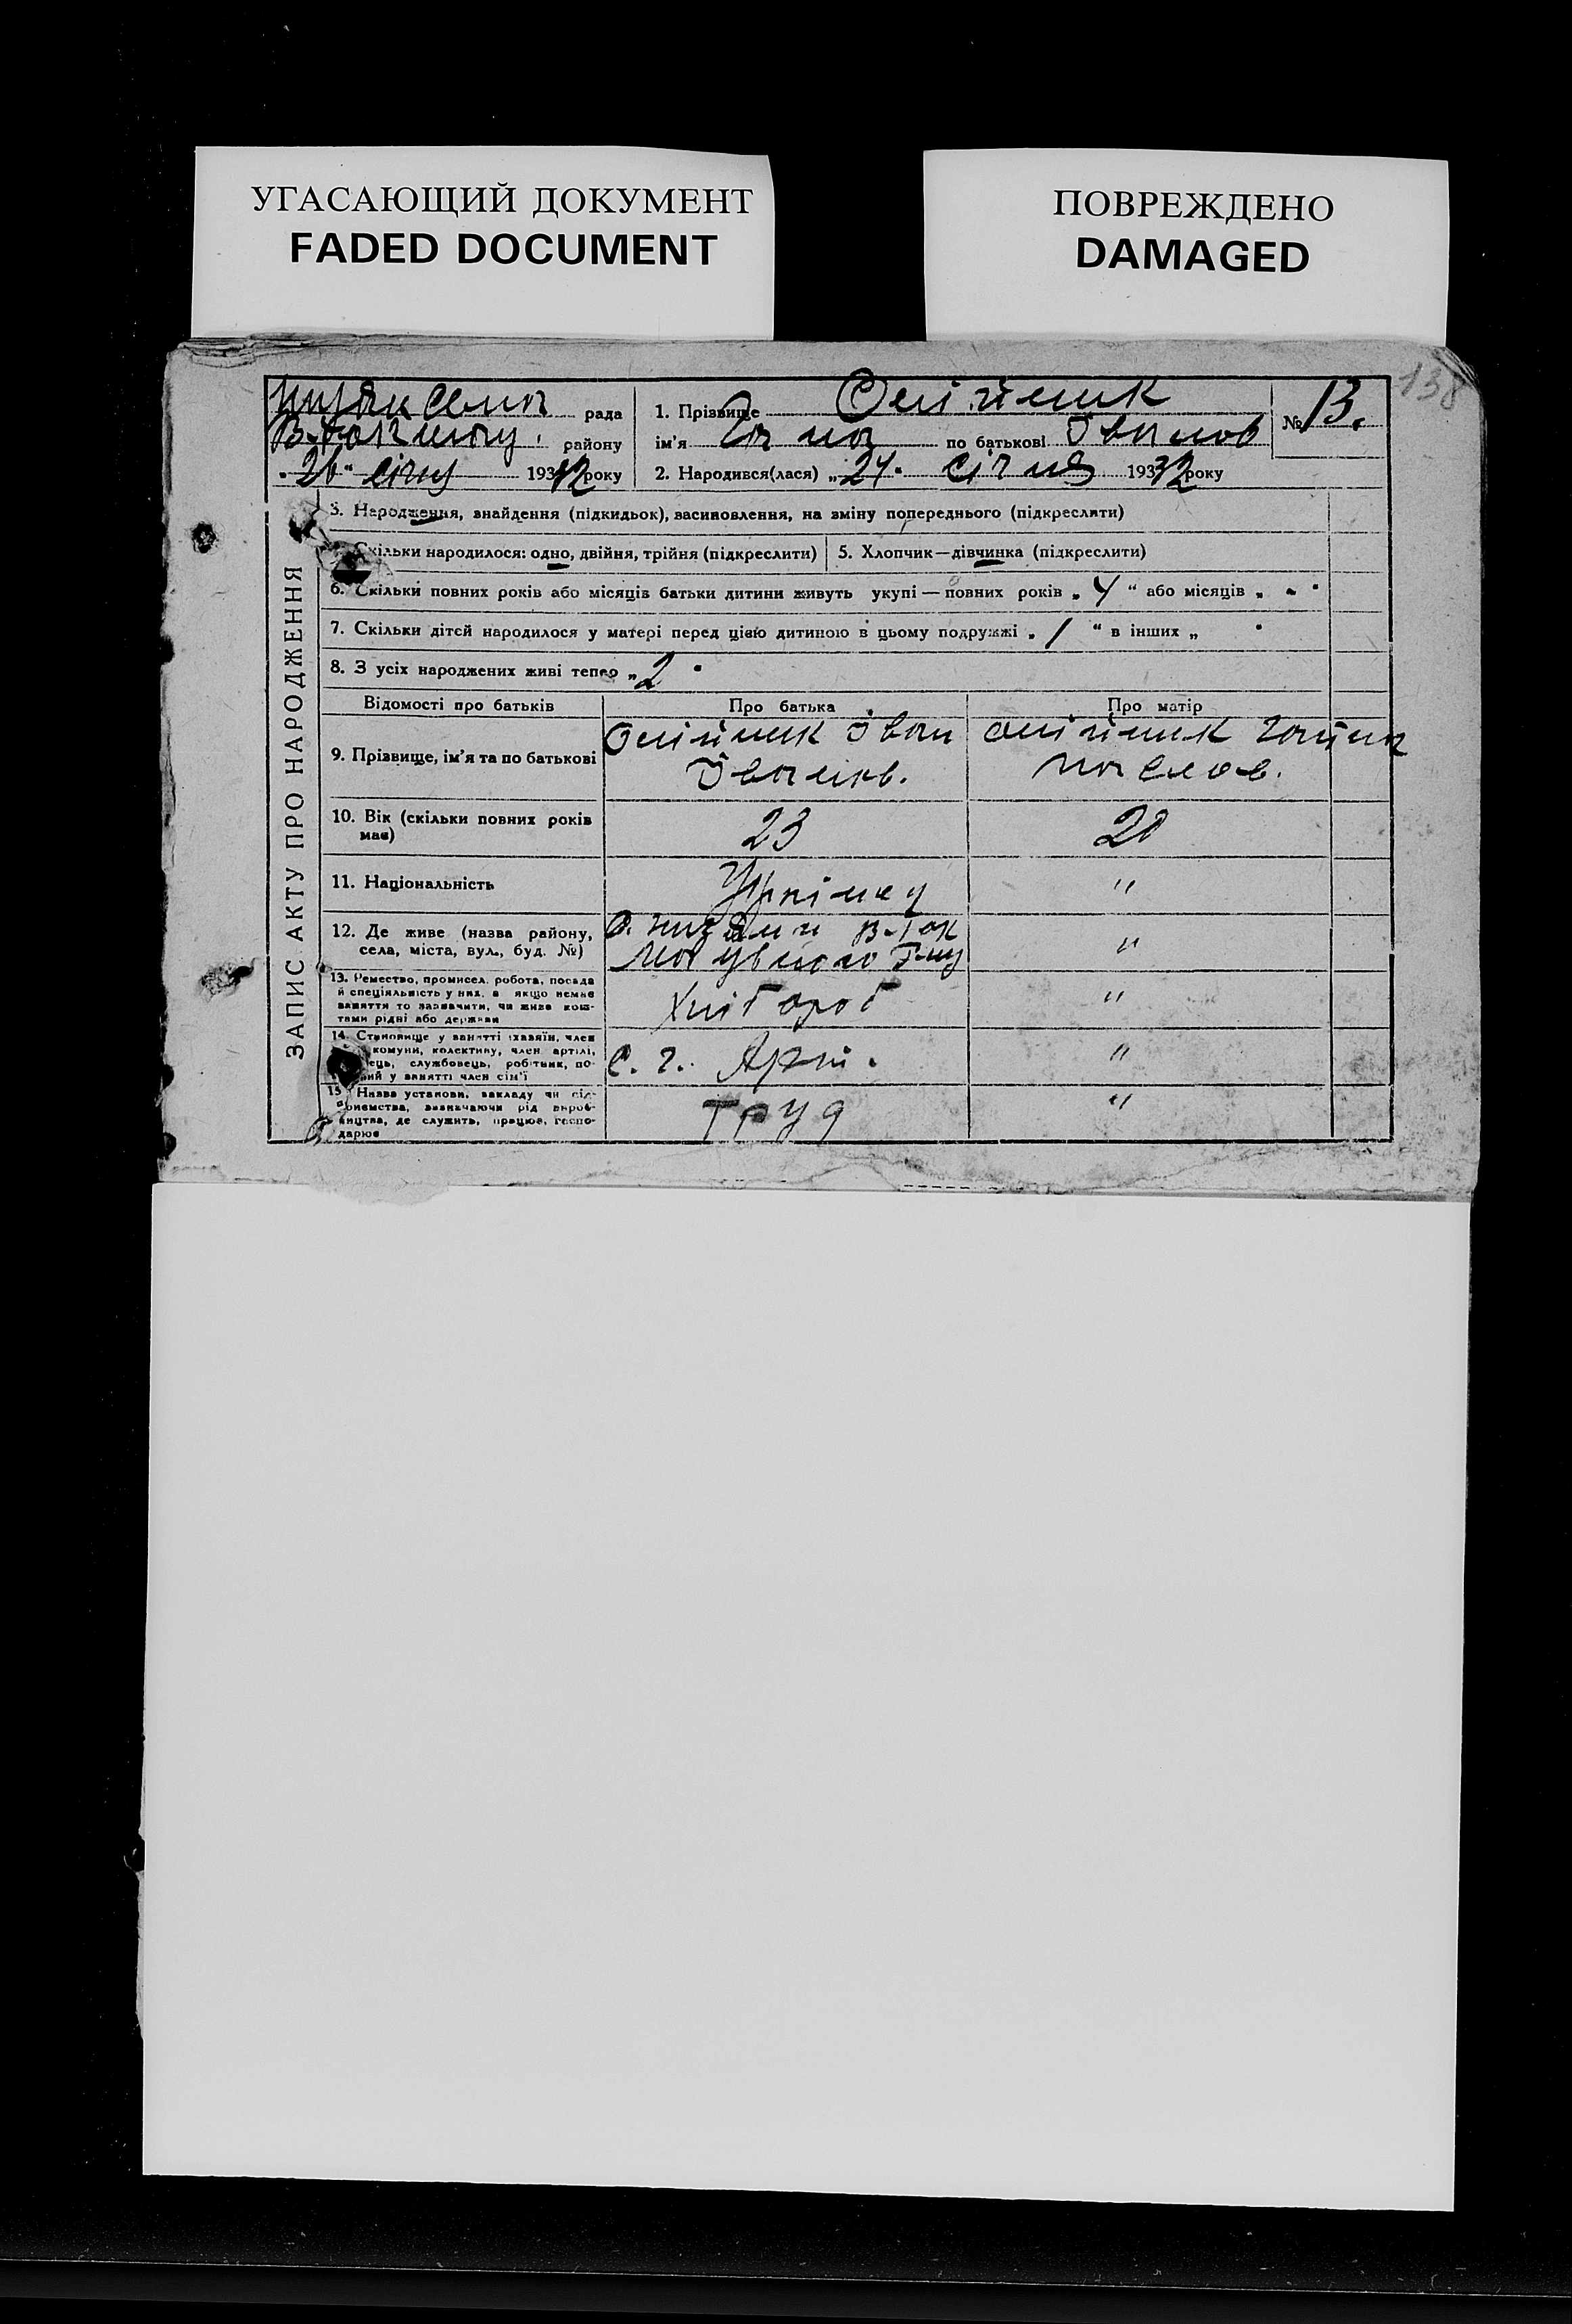 УГАСАЮЩИЙ ДОКУМЕНТ
FADED DOCUMENT
ПОВРЕЖДЕНО
DAMAGED
138
рада
району
"26" січня 1932 року
1. Прізвище Олійник
ім'я Ганна по батькові Іванов
2. Народився(лася) "24" січня 1932 року
№ 13.
ЗАПИС АКТУ ПРО НАРОДЖЕННЯ
3. Народження, знайдення (підкидьок), васиновлення, на зміну попереднього (підкреслити)
Скільки народилося: одно, двійня, трійня (підкреслити)
5. Хлопчик—дівчинка (підкреслити)
6. Скільки повних років або місяців батьки дитини живуть укупі — повних років „ 4 “ або місяців „ “
7. Скільки дітей народилося у матері перед цією дитиною в цьому подружжі „ 1 “ в інших „ “
8. З усіх народжених живі тепер „ 2 “
Відомості про батьків
Про батька
Про матір
9. Прізвище, ім'я та по батькові
Олійник Іван
Іванов.
Олійник Ганна
10. Вік (скільки повних років
має)
23
20
11. Національність
"
12. Де живе (назва району,
села, міста, вул., буд. №)
"
13. Ремество, промисел, робота, посада
й спеціяльність у них, а якщо немає
заняття то зазначити, чи живе кош-
тами рідні або держави
Хлібороб
"
14. Становище у занятті (хазяїн, член
комуни, колективу, член артілі,
службовець, робітник, по-
у занятті член сім'ї
с. г. Арт.
"
15 Назва установи, закладу чи під-
приємства, зазначаючи рід вироб-
ництва, де служить, працює, госпо-
дарює
Труд
"